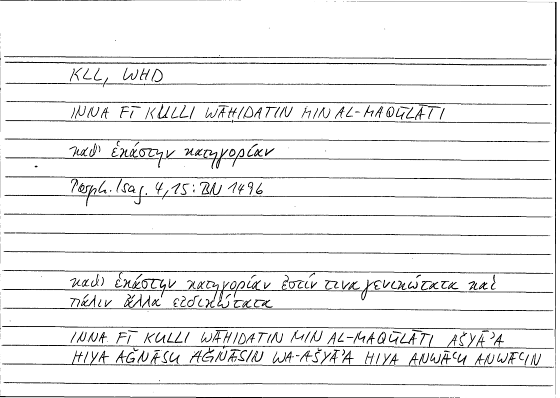 KLL, WHD
INNA FĪ KULLI WĀḤIDATIN MIN AL-MAQŪLĀTI
καθ' ἑκάστην κατηγορίαν
Porph. Isag. 4,15: BN 1496
καθ' ἑκάστην κατηγορίαν ἐστίν τινα γενικώτατα καὶ
πάλιν ἄλλα εἰδικώτατα
INNA FĪ KULLI WĀḤIDATIN MIN AL-MAQŪLĀTI AŠYĀʾA
HIYA AǦNĀSU AǦNĀSIN WA-AŠYĀʾA HIYA ANWĀʿU ANWĀʿIN